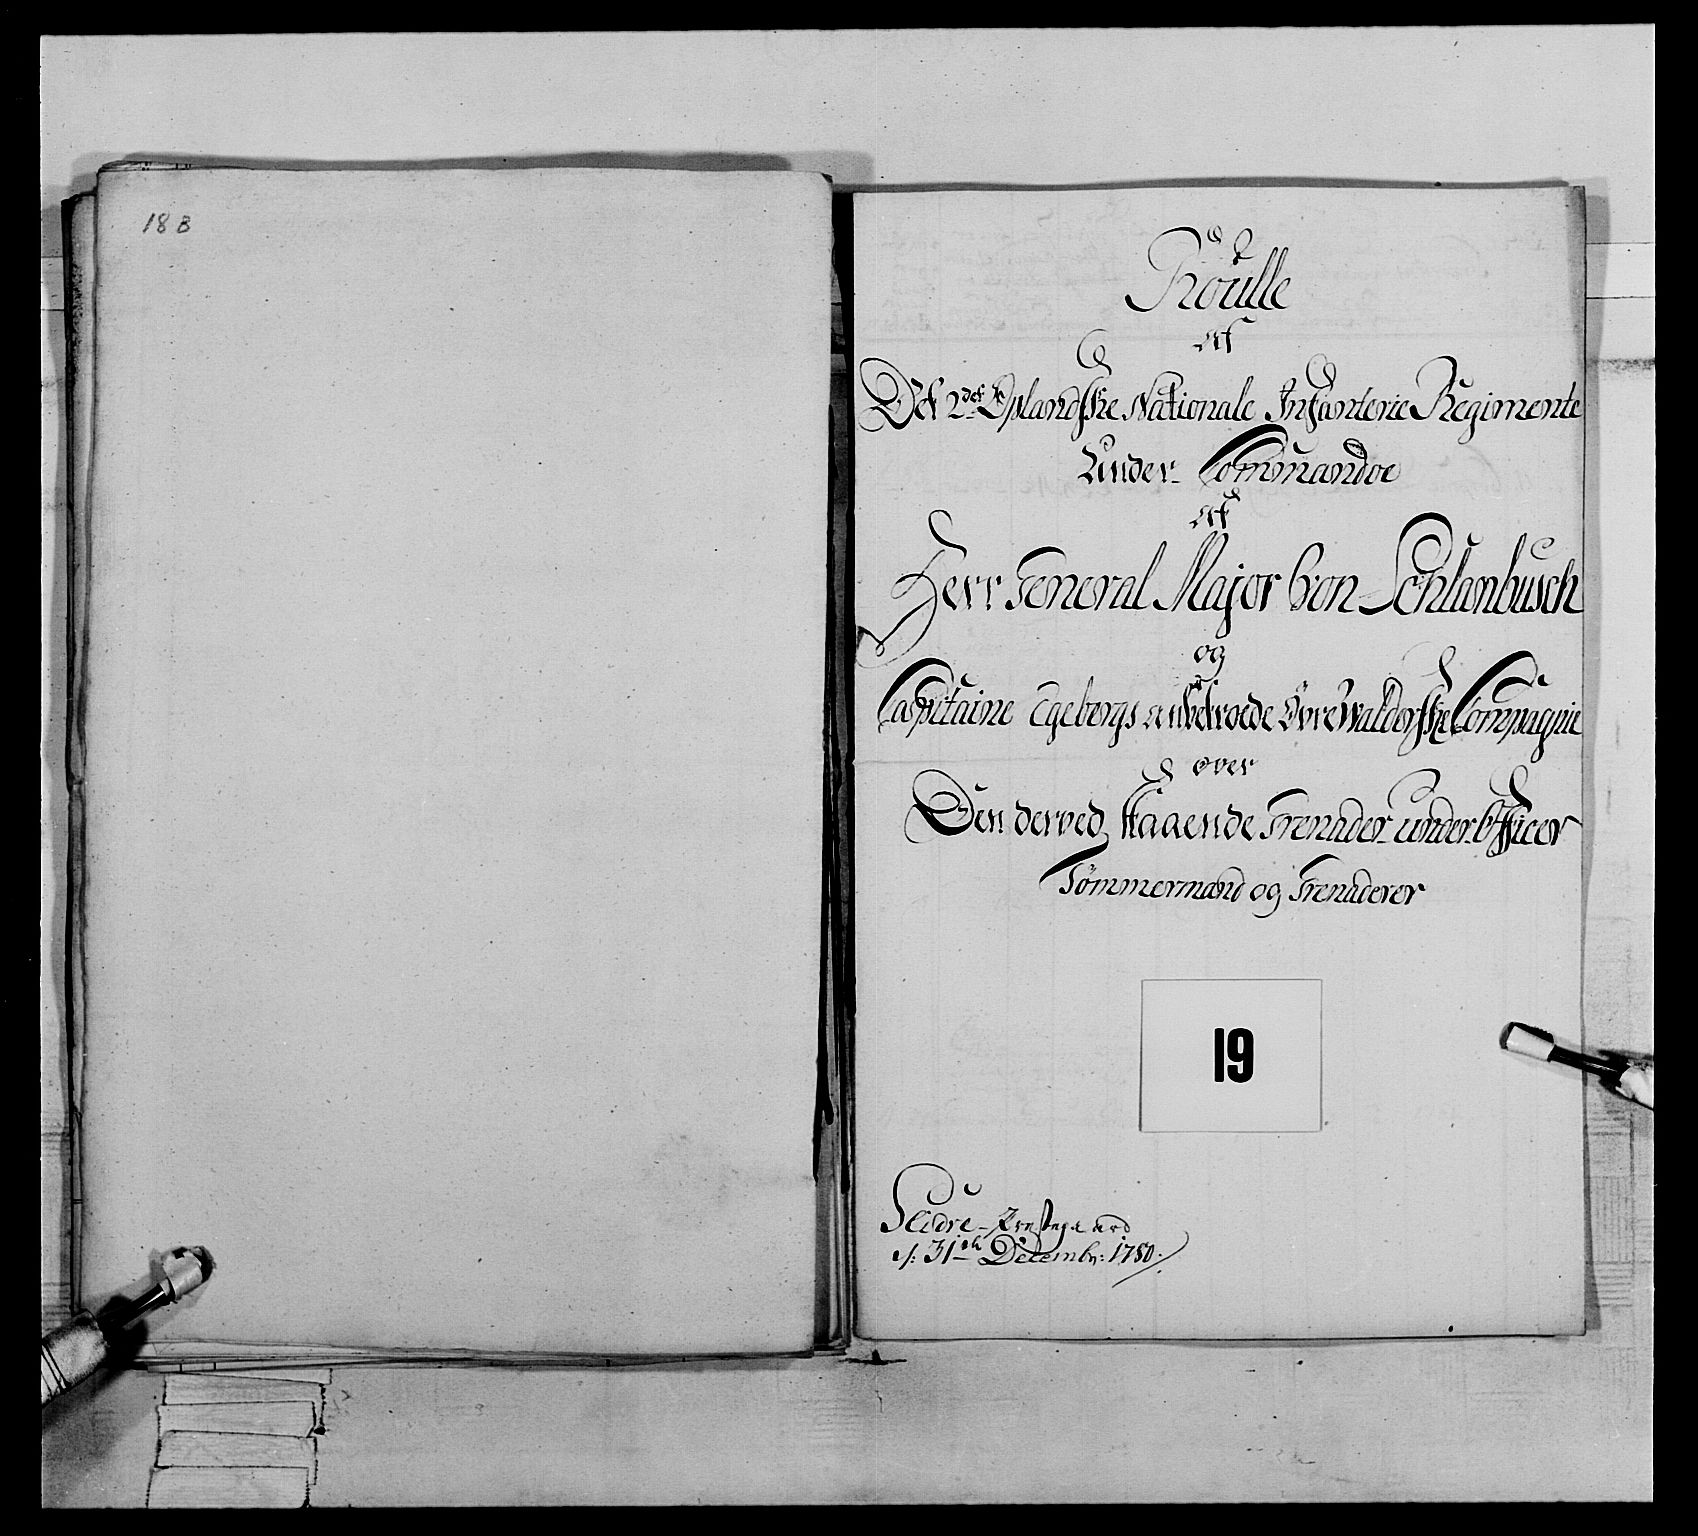 18 B
Roulle
af
Det 2det Oplandske Nationale Infanterie Regimente
Under Commandoe
af
Herr General Major von Schlanbusch
og
Capitaine Egebergs anbetroede Øvre Walderske Compagnie
over
Den derved staaende Grenader-underofficer
Tømmermænd og Grenaderer
19
Slidre-Præstegaard
d: 31th Decembr: 1780.